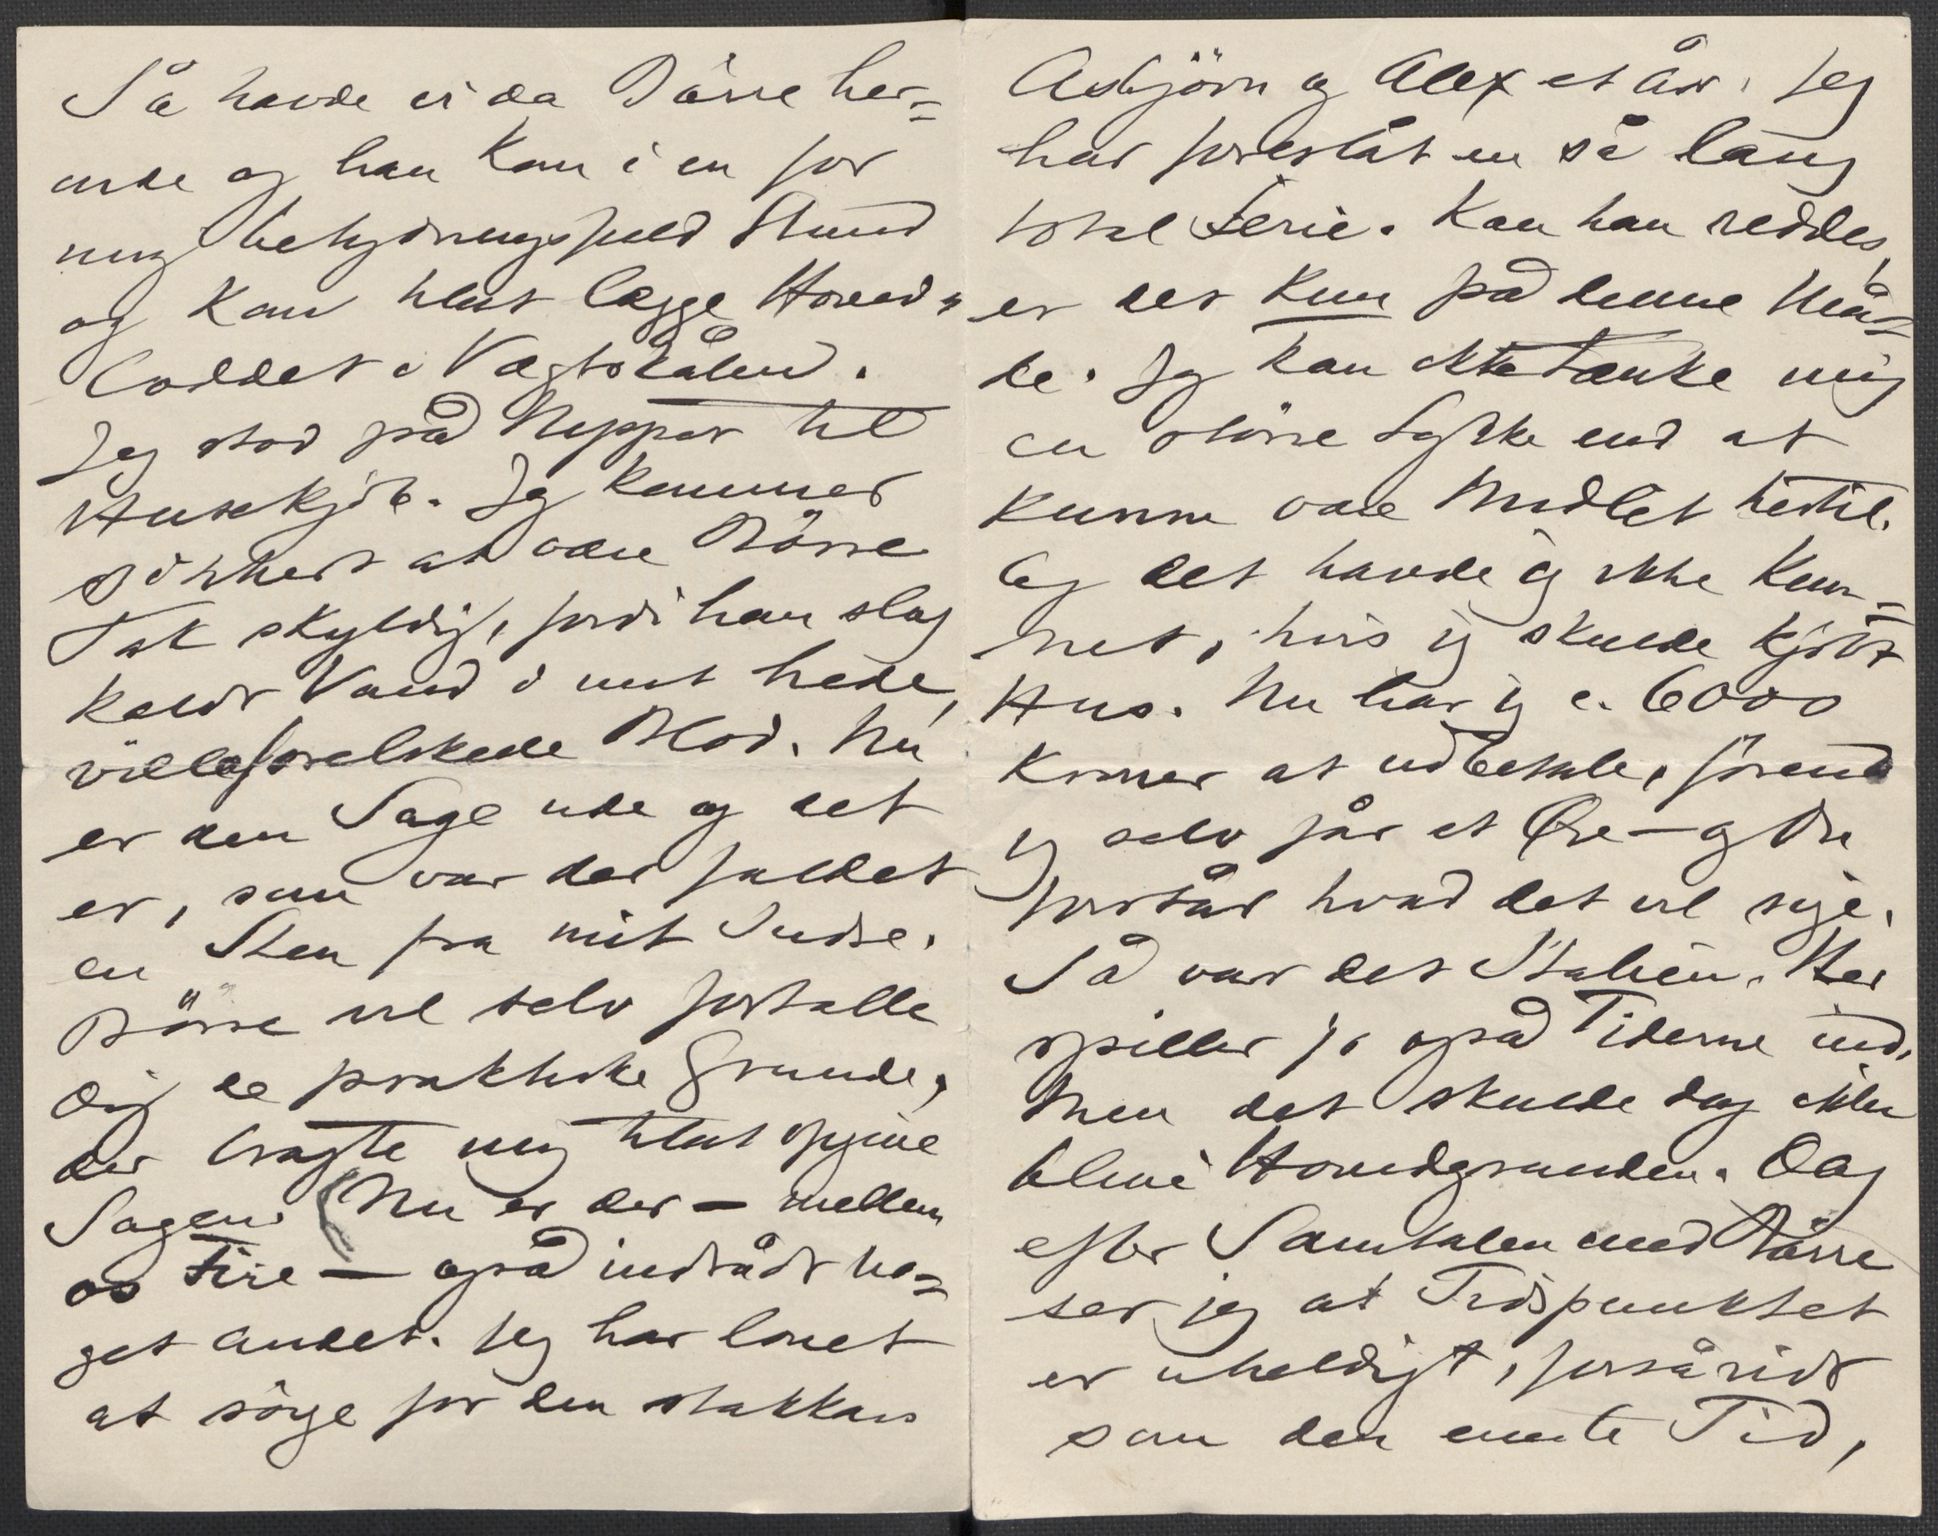 Så havde vi da Börre her=
nede og han kom i en for
mig betydningsfuld Stund
og kom til at lægge Hoved=
loddet i Vægtskålen.
Jeg stod på Nippet til
Husekjöb. Jeg kommer
sikkert at være Börre
Tak skyldig, fordi han slog
koldt Vand i mit hede,
villaforelskede Blod. Nu
er den Sage ude og det
er, som var der faldet
en Sten fra mit Indre.
Börre vil selv fortælle
Dig de praktiske Grunde,
der bragte mig til at opgive
Sagen. (Nu er der — mellem
os Fire — også indtrådt no=
get andet. Jeg har lovet
at sörge for den stakkars
Asbjörn og Alex et År. Jeg
har foreslåt en så lang
total Ferie. Kan han reddes,
er det kun på denne Må=
de. Jeg kan ikke tænke mig
en större Lykke end at
kunne være Midlet hertil.
Og det havde jeg ikke kun=
net, hvis jeg skulde kjöbt
Hus. Nu har jeg c. 6000
Kroner at udbetale, förend
jeg selv får et Øre — og Du
forstår hvad det vil sige.
Så var det Italien. Her
spiller jo også Tiderne ind.
Men det skulde dog ikke
blive Hovedgrunden. Og
efter Samtalen med Börre
ser jeg at Tidspunktet
er uheldigt, forsåvidt
som den eneste Tid,